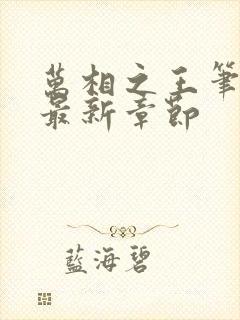 萬相之王筆
最新章節
藍海碧